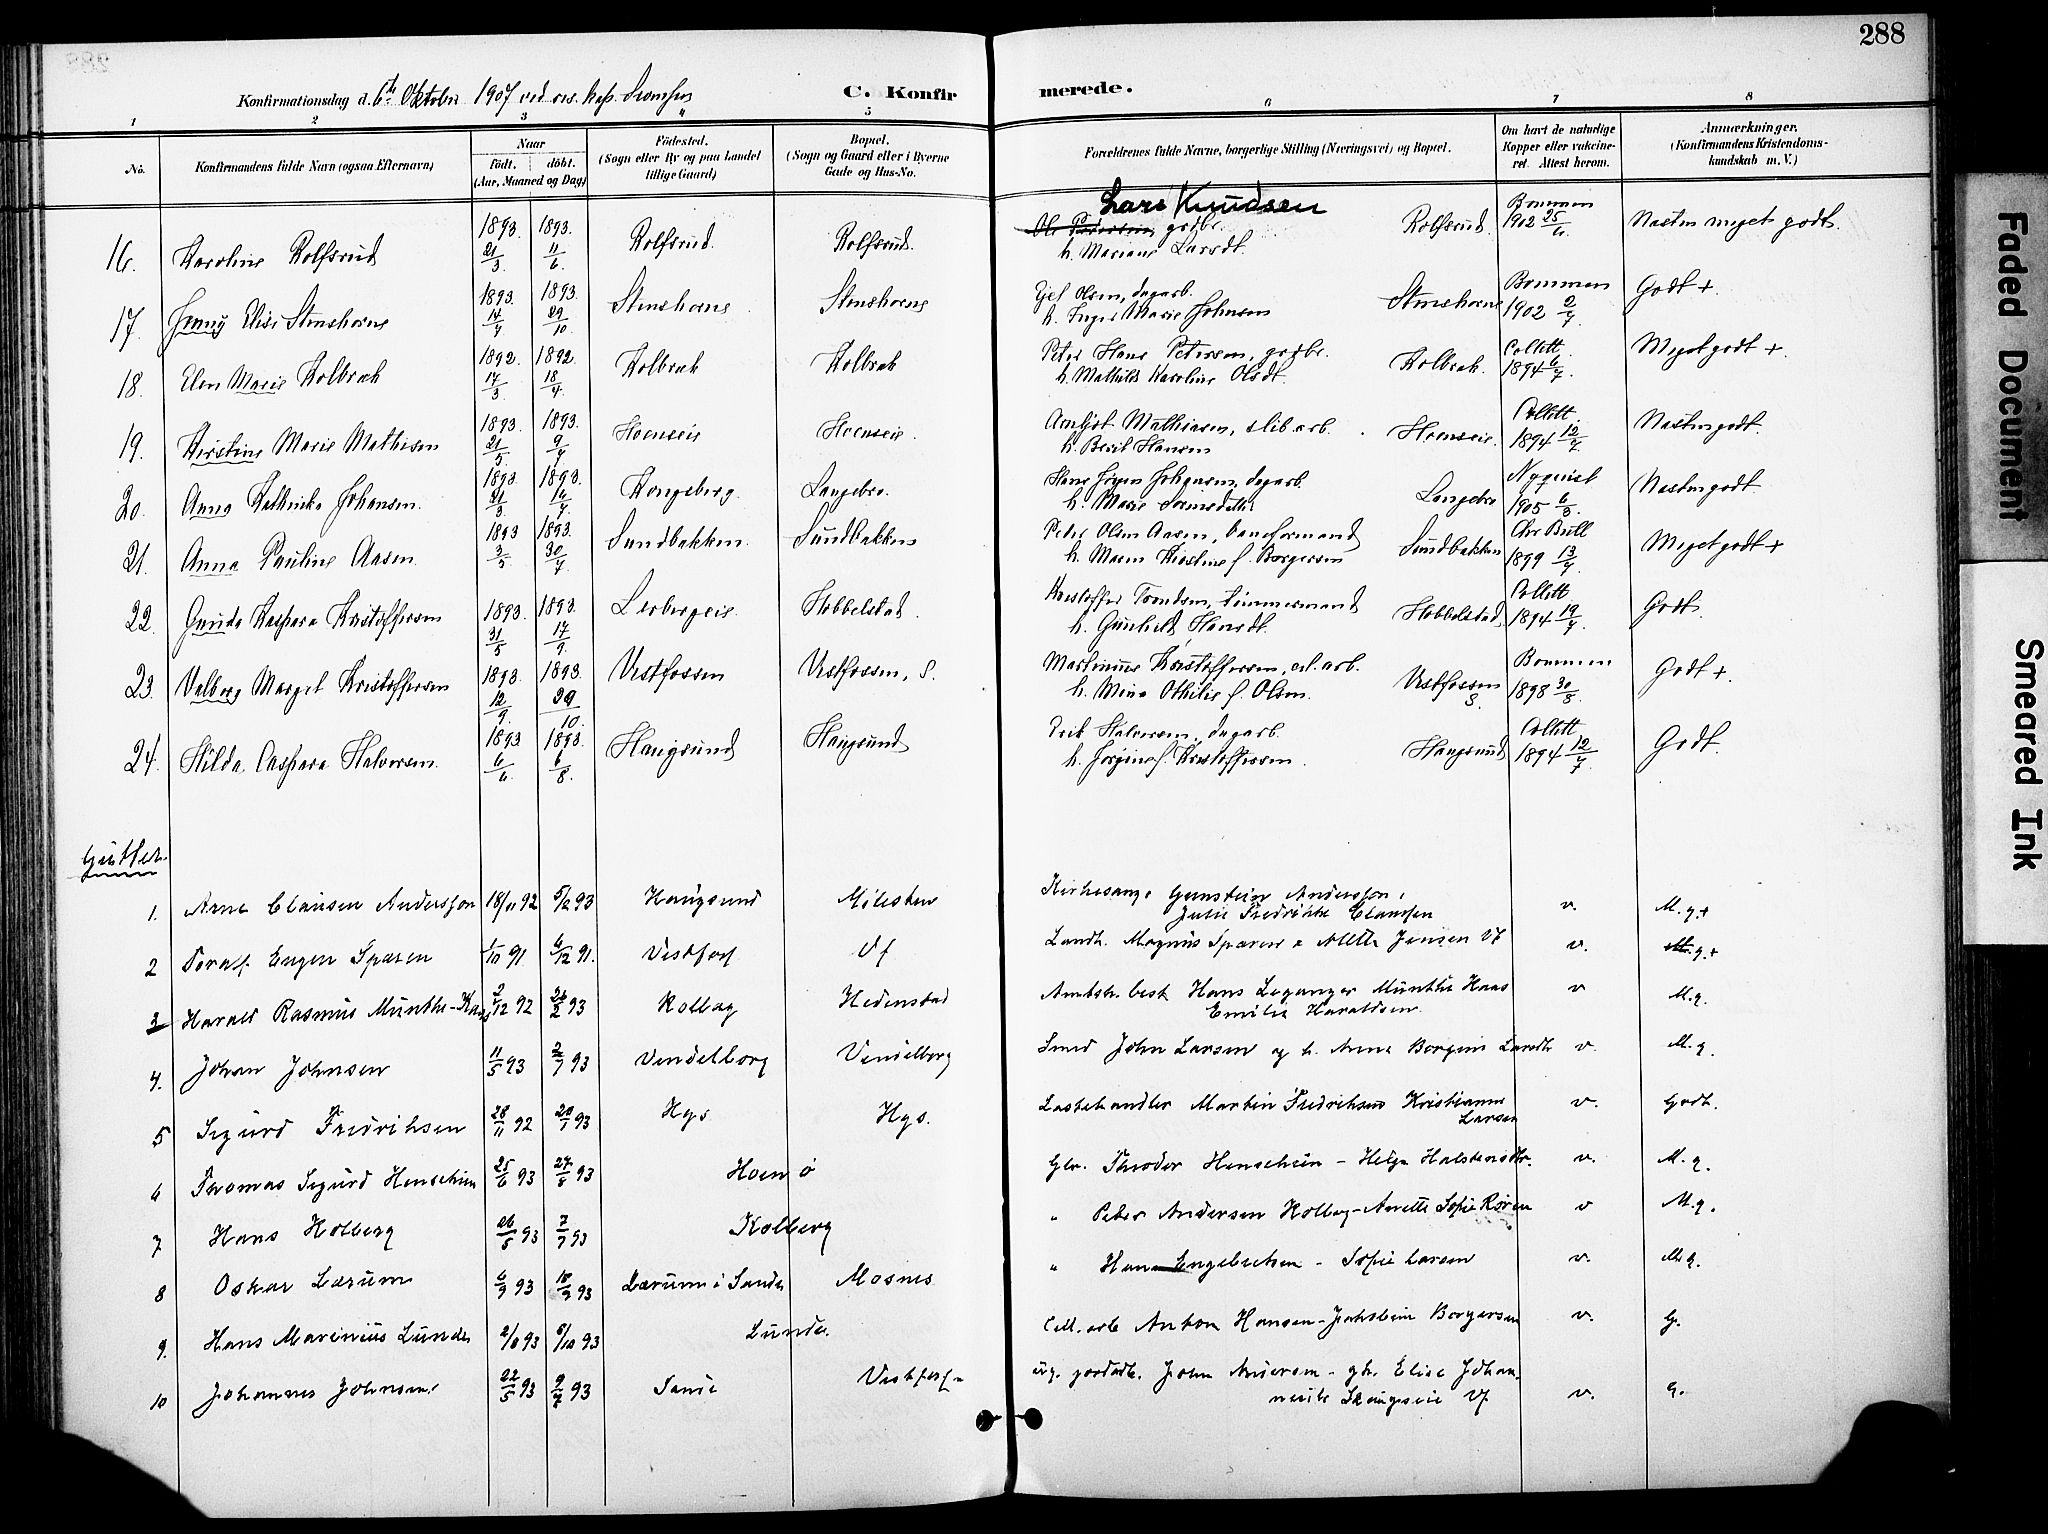 288
Konfirmationsdag d. 6te Oktober 1907 ved res. kap.
C. Konfir merede.
1 2 3 4 5 6 7 8
No. Konfirmandens fulde Navn (ogsaa Efternavn) Naar födt. döbt. (Aar, Maaned og Dag) Födested. (Sogn eller By og paa Landet tillige Gaard) Bopæl. (Sogn og Gaard eller i Byerne Gade og Hus-No. Forældrenes fulde Navne, borgerlige Stilling (Næringsvei) og Bopæl. Om havt de naturlige Kopper eller vakcineret. Attest herom. Anmærkninger. (Konfirmandens Kristendomskundskab m. V.)
Lars Knudsen
16. Karoline Rolfsrud 1893. 21/3. 1893. 11/6. Rolfsrud. Rolfsrud. Ole Pedersen, grdbr. h. Mariane Larsdt. Rolfsrud. Bommen 1902 25/6. Næsten meget godt.
17. Jenny Elise Stenshorne 1893. 14/7 1893. 29/10. Stenshorne Stenshorne Ejel Olsen, dagarb. h. Inger Marie Johnsen Stenshorne Bommen 1902 2/7 Godt +
18. Elen Marie Kolbræk 1892 17/3. 1892. 18/4. Kolbræk Kolbræk Peter Hans Petersen, grdbr. h. Mathilde Karoline Olsdt. Kolbræk. Collett 1894 6/7. Meget godt +.
19. Kirstine Marie Mathisen 1893. 21/5. 1893. 9/7 Hoenseie Hoenseie. Arnljot Mathiasen, slib. arb. h. Berit Hansen Hoenseie. Collett 1894 12/7 Næsten godt.
20. Anna Kathinka Johansen. 1893. 21/3. 1893. 16/7 Kongsberg. Langebro. Hans Jørgen Johansen, dagarb. h. Marie Langebro Nyquist 1905 6/8. Næsten godt.
21. Anna Pauline Aasen 1893 3/5 1893. 30/7 Sundbakken. Sundbakken Peter Olsen Aasen, baneformand h. Maren Kirstine f. Borgersen Sundbakken Chr Bull 1899 13/7 Meget godt +
22. Gunda Kaspara Kristoffersen 1893. 31/5 1893. 17/9. Lerbergeie. Hobbelstad. Kristoffer Trondsen, tømmermand h. Gunhild Hansdt. Hobbelstad. Collett 1894 19/7. Godt.
23. Valborg Marget Kristoffersen 1893. 12/9. 1893. 29/10. Vestfossen Vestfossen, S. Martinius Kristoffersen, cel. arb. h. Mina Othilie f. Olsen. Vestfossen S. Bommen 1898 30/8 Godt +.
24. Hilda Caspara Halvorsen. 1893 6/6 1893. 6/8. Haugsund Haugsund Erik Halvorsen, dagarb. h. Jørgine f. Kristoffersen. Haugsund Collett 1894 12/7 Godt.
Gutter.
1. Arne Clausen Andersson 18/11 92 5/2 93 Haugsund Milesten Kirkesang. Gunstein Andersson, Julie Fredrikke Claussen v. M. g. +
2 Toralf Eugen Sparen 1/10 91 6/12 91. Vestfos Vf Landh. Magnus Sparen & Mette Jensen Vf v. M. g. +
3 Harald Rasmus Münthe-Kaas 2/12 92 26/2 93 Kolberg Hedenstad Amtsk. best. Hans Leganger Münthe Kaas Emilie Haraldsen. v M. g.
4. Johan Johnsen 11/5 93 2/7 93 Vendelborg Vendelborg Smed John Larsen og h. Anne Borgine Larsdtr v. M. g.
5 Sigurd Fredriksen 28/11 92 20/1 93 Hgs Hgs. Lastehandler Martin Fredriksen Kristianne Larsen v. Godt.
6 Thomas Sigurd Henschien 25/6 93 27/8 93 Hoen ø Gbr. Theodor Henschien - Helga Halstensdtr. v. M. g.
7 Hans Holberg 26/5 93 7/7 93 Kolberg " Peter Andersen Kolberg - Anette Sofie Røren v M. g.
8 Oskar Lærum 6/7 93 18/9 93 Lærum i Sande Mosnes " Hans Engebretsen - Sofie Larsen v. M. g.
9. Hans Marinius Lunde 2/8 93 8/10 93 Lunde. Cell. arb Anton Hansen - Jakobine Borgersen v. G.
10 Johannes Johnsen 22/5 93 9/7 93 Sande Vestfos Johan Andersen - gh. Elise Johannesdtr Skaugseie Vf. v. G.
Faded Document
Smeared Ink